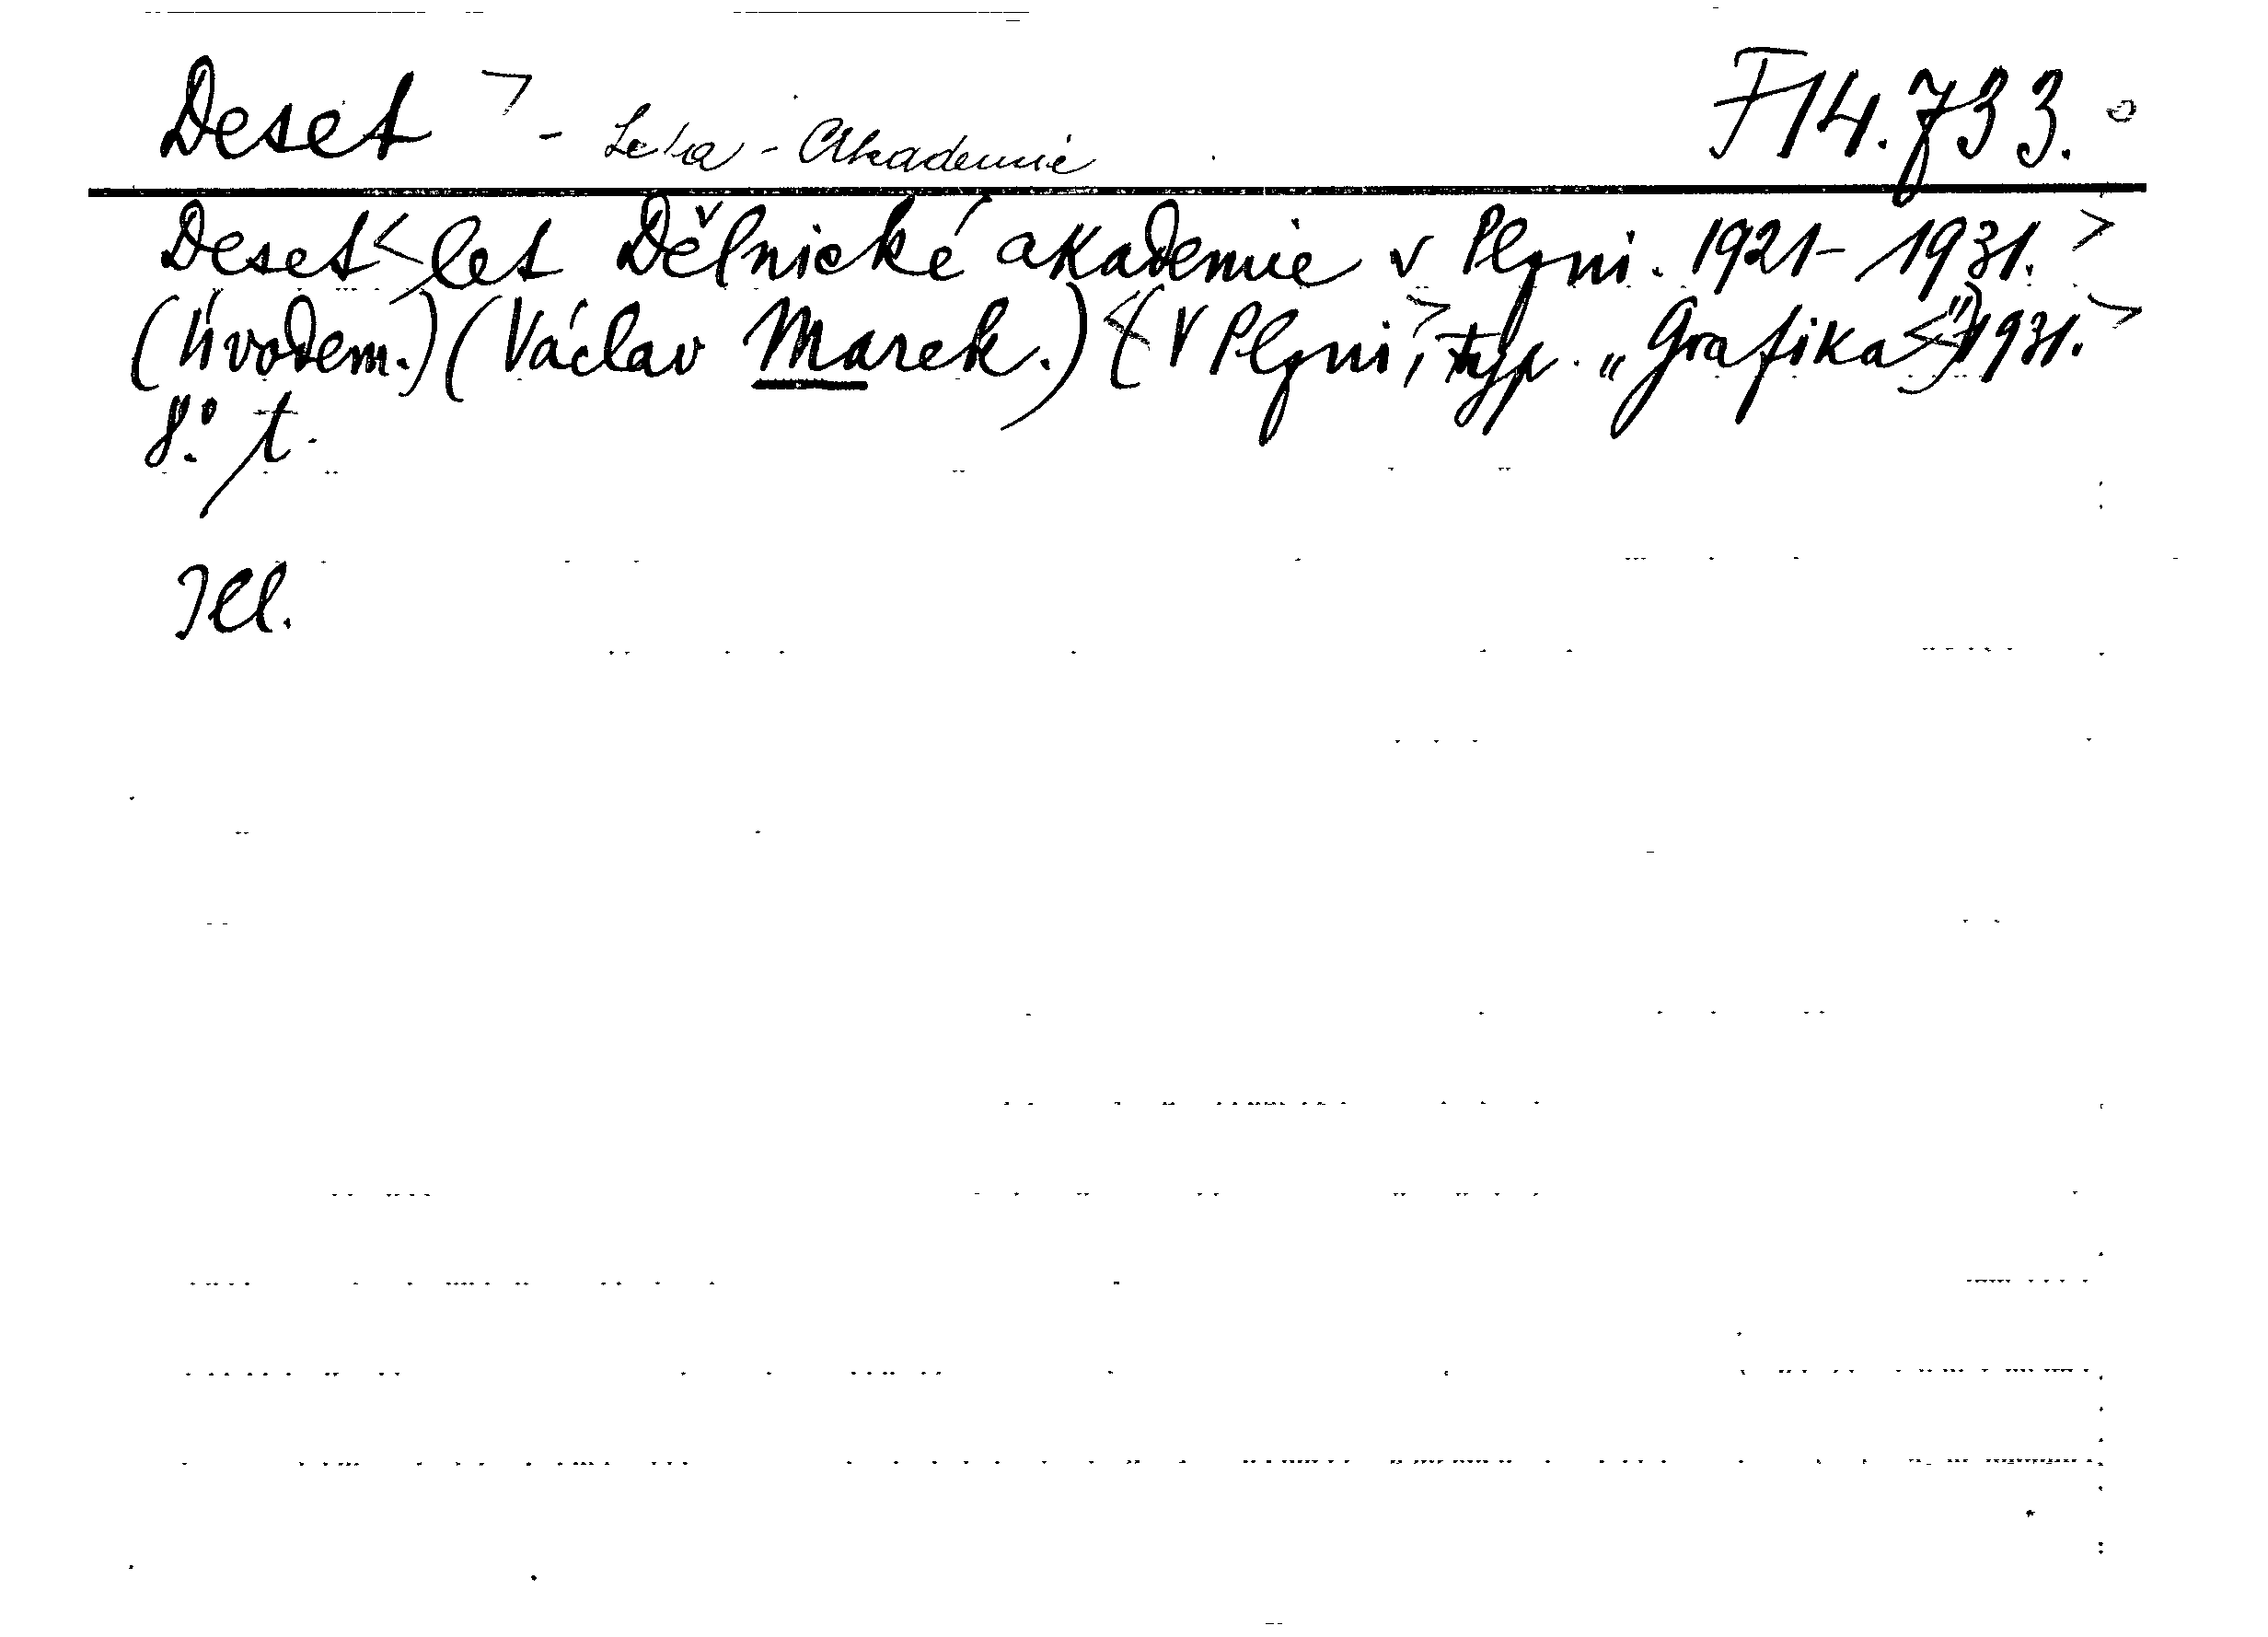 Deset - Leta - Akademie F 14.733.
Deset let Dělnické akademie v Plzni. 1921-1931.
(Úvodem.) (Václav Marek.) (V Plzni, typ. „Grafika") 1931.
8°. t.
Ill.